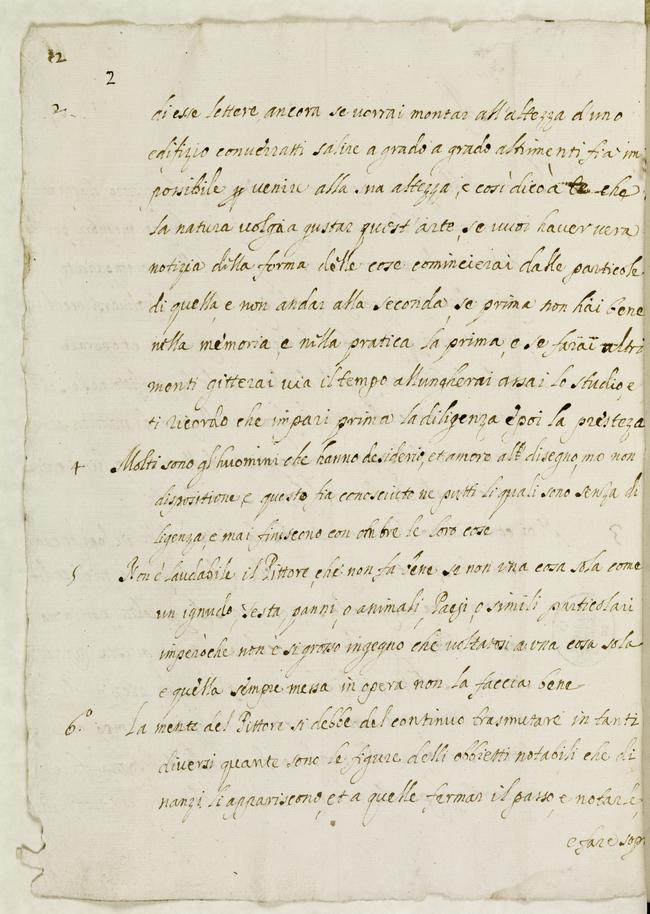 12
2
2
di esse lettere ancora se vorrai montar all'altezza d'uno
edifizio converratti salire a grado a grado altrimenti fia im
possibile p venire alla sua altezza, e così dico à te che
la natura volgi a gustar quest'arte, se vuoi haver vera
notizia della forma delle cose comincierai dalle particole
di quella, e non andar alla seconda, se prima non hai bene
nella memoria, e nella pratica la prima, e se farai altri
menti gitterai via il tempo allungherai assai lo studio, e
ti ricordo che impari prima la diligenza e poi la prestezza
4 Molti sono gl'huomini che hanno desiderio, et amore al disegno, ma non
dispositione, e questo fia conosciuto ne putti li quali sono senza di
ligenza, e mai finiscono con ombre le loro cose
5 Non è laudabile il Pittore, che non fa bene se non una cosa sola come
un ignudo, testa, panni, o animali, Paesi, o simili particolari
imperoche non è si grosso ingegno che voltatosi a una cosa sola
e quella sempre messa in opera non la faccia bene
6.º La mente del Pittore si debbe del continuo trasmutare in tanti
diversi quante sono le figure delli obbietti notabili che di
nanzi li appariscono, et a quelle fermar il passo, e notarle,
e fare sopr